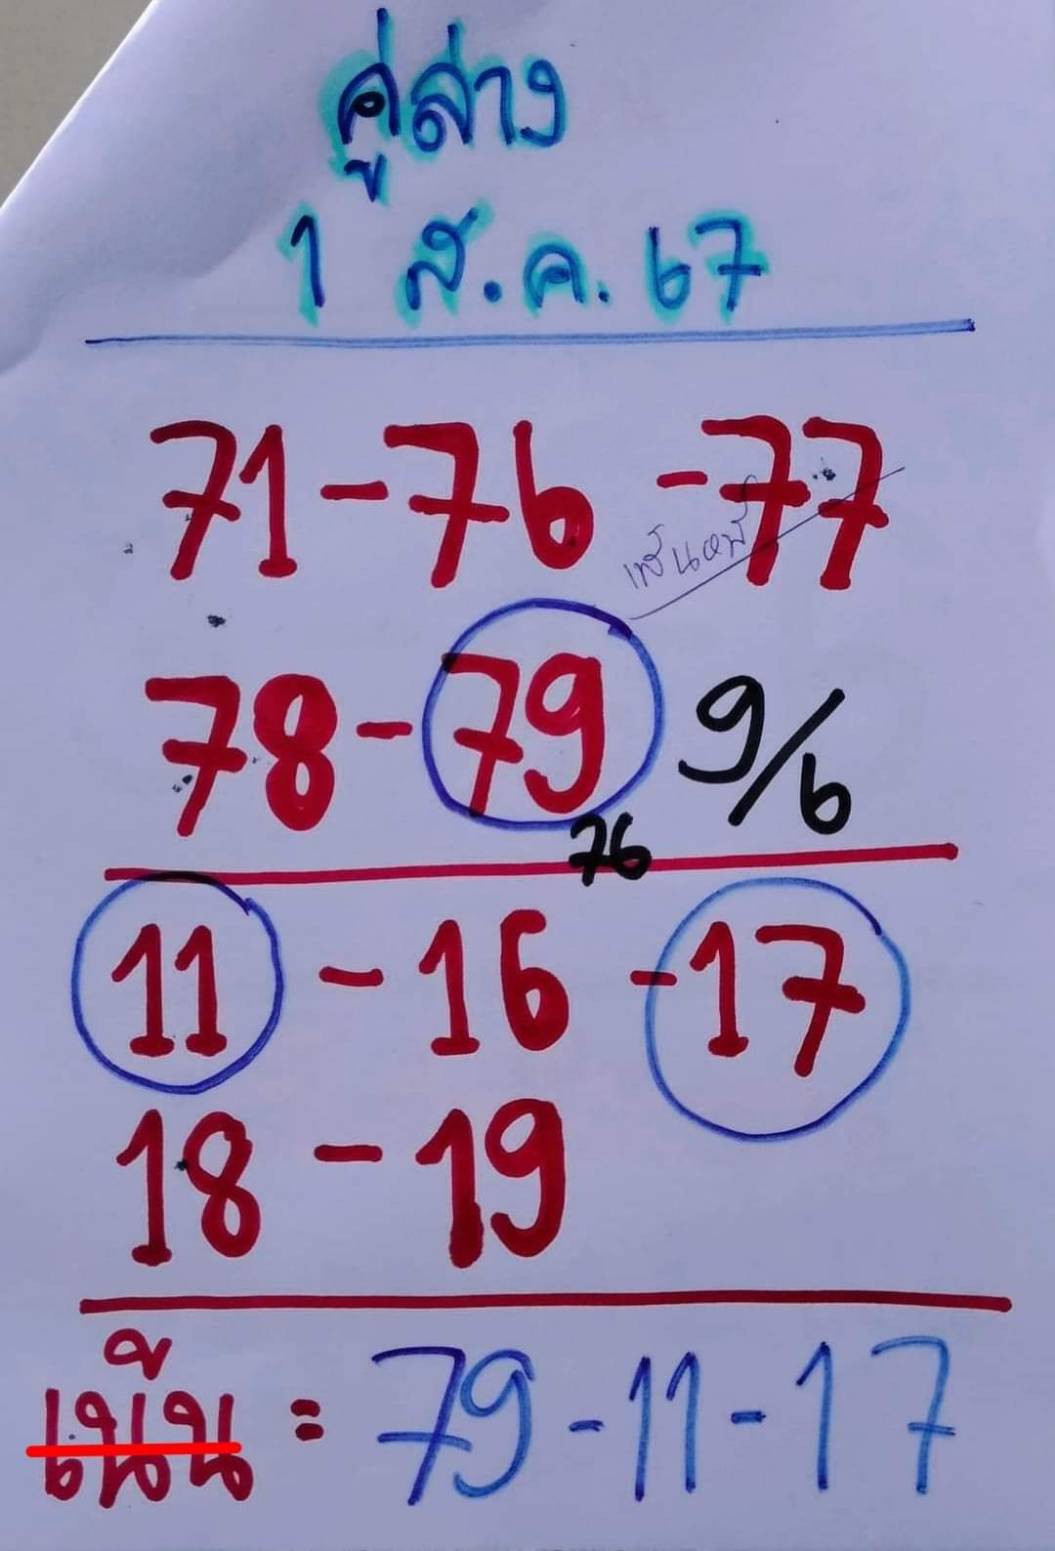 คู่ล่าง
1 ส.ค. 67
71 - 76 - 77
78 - 79 9/6
76
11 - 16 - 17
18 - 19
เน้น = 79 - 11 - 17